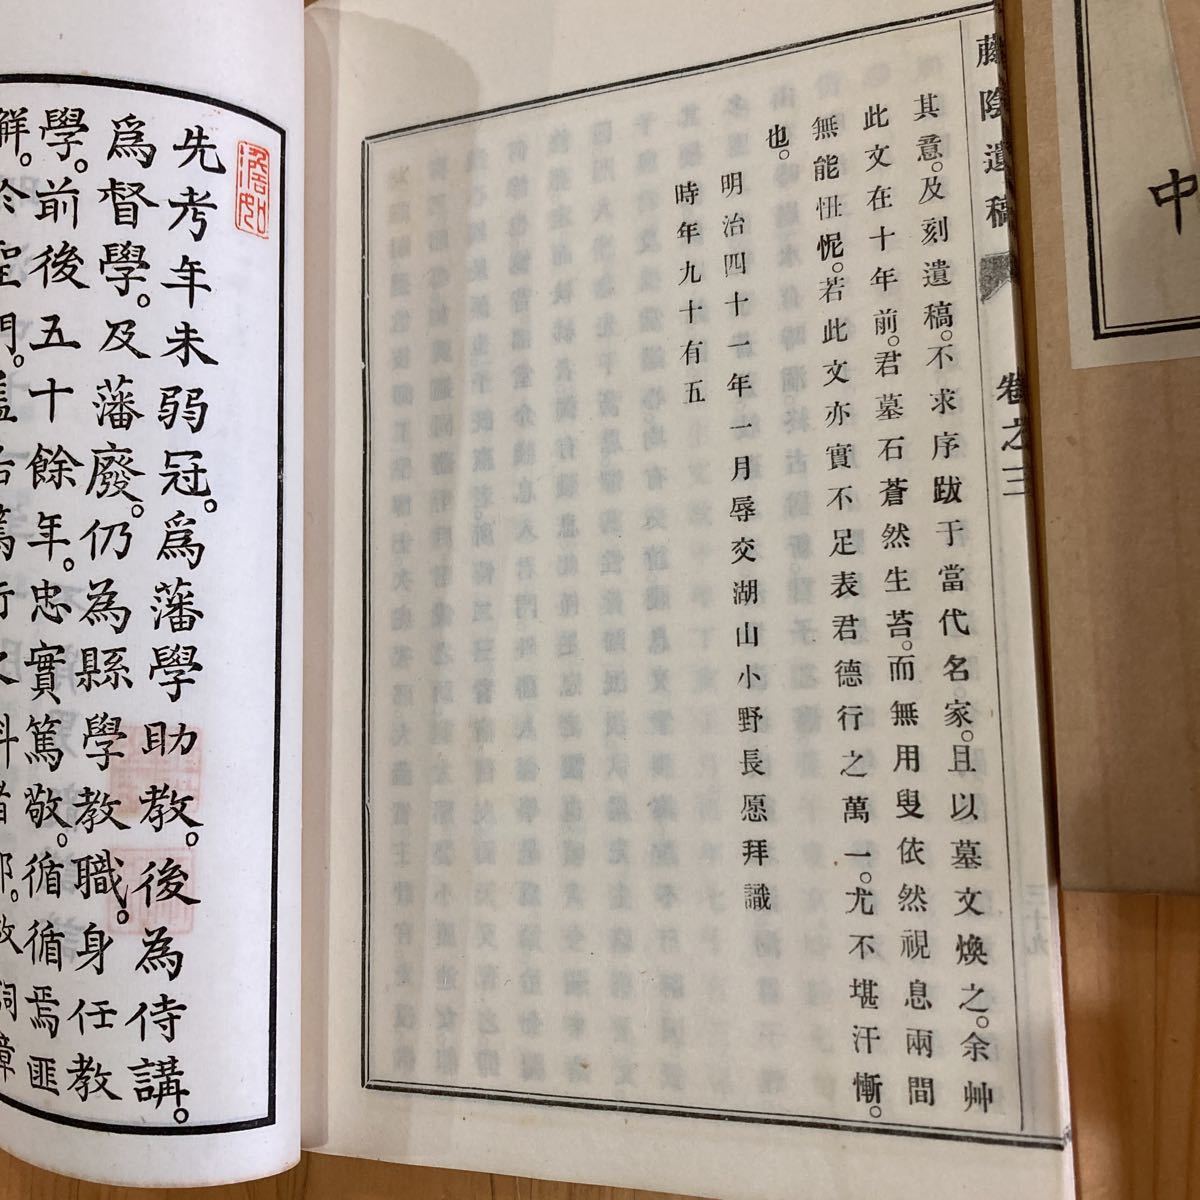 中
藤陰遺稿
卷之三
其意。及刻遺稿。不求序跋于當代名家。且以墓文煥之。余艸
此文在十年前。君墓石蒼然生苔。而無用叟依然視息兩間
無能忸怩。若此文亦實不足表君德行之萬一。尤不堪汗慚。
也。
明治四十一年一月辱交湖山小野長愿拜識
時年九十有五
三十九
先考年未弱冠。爲藩學助教。後為侍講。
爲督學。及藩廢。仍為縣學教職。身任教
學。前後五十餘年。忠實篤敬。循循焉匪
解。於聖門。
篤行之科者耶。
詞章